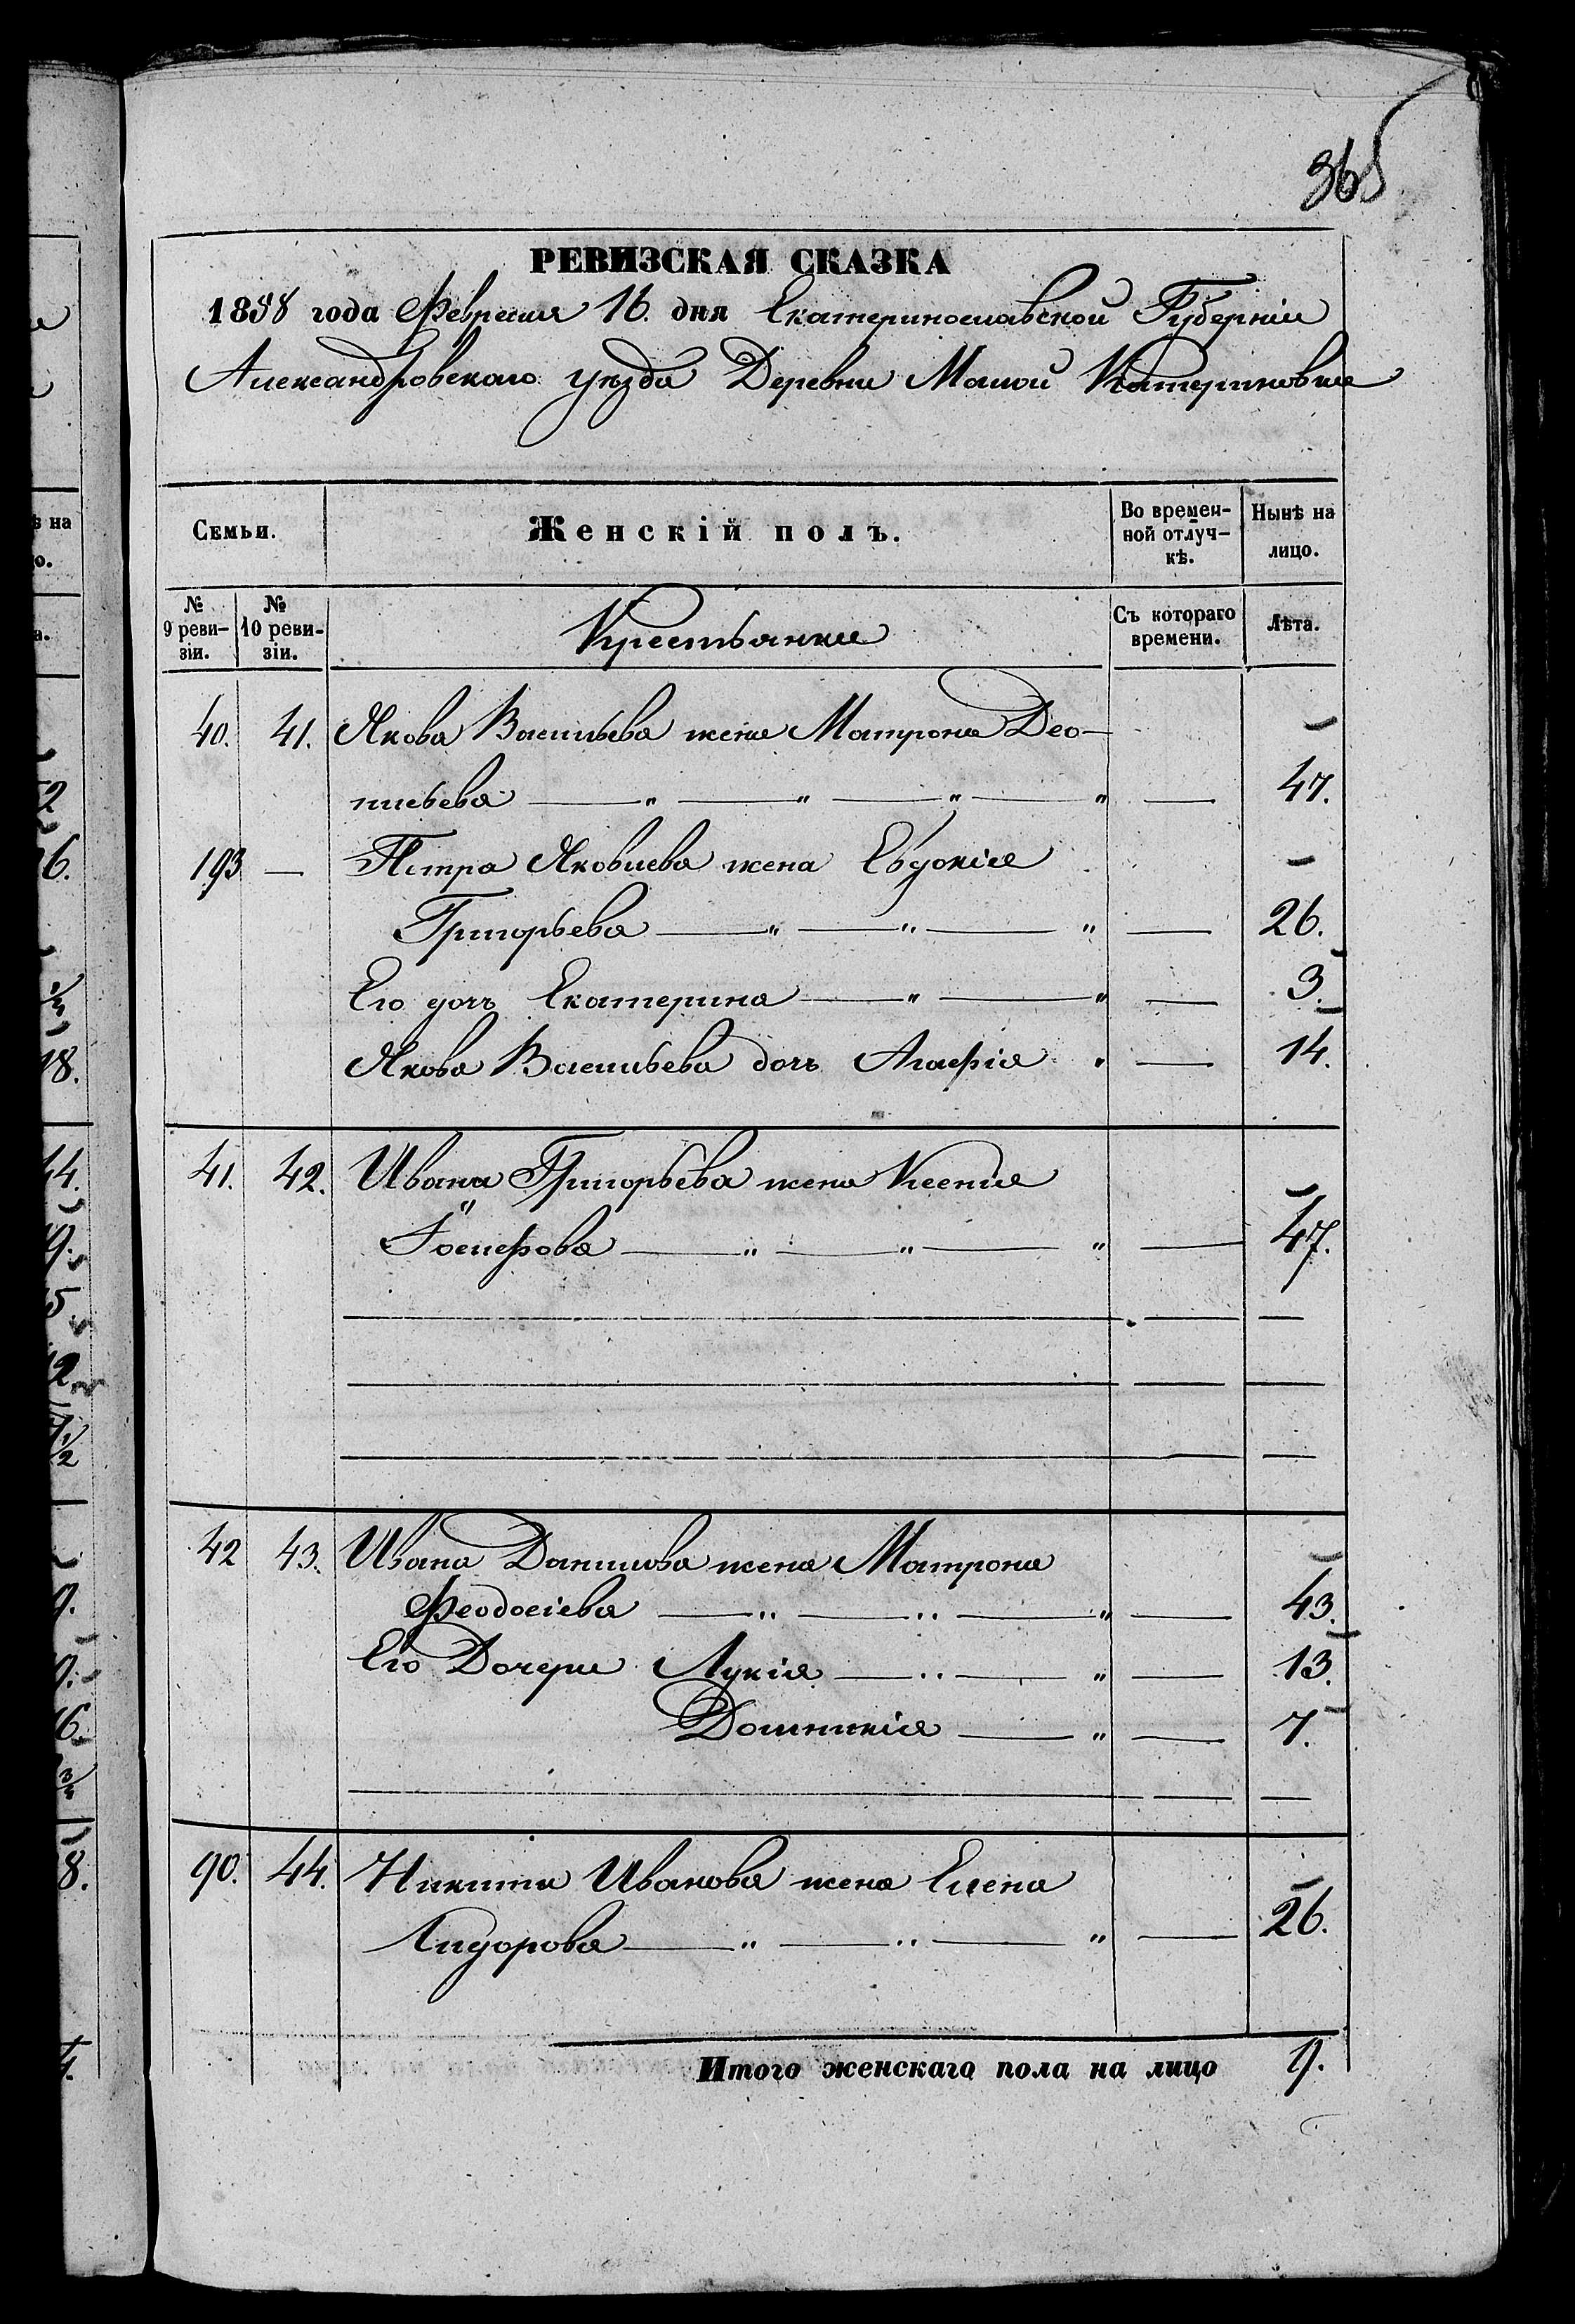 365
РЕВИЗСКАЯ СКАЗКА
1858 года Февраля 16. дня Екатеринославской Губерніи
Александровскаго уѣзда Деревни Малой Катериновки
Семьи.
Женскій полъ.
Во времен-
ной отлуч-
кѣ.
Нынѣ на
лицо.
№
9 реви-
зіи.
№
10 реви-
зіи.
Крестьянки
Съ котораго
времени.
Лѣта.
40. 41. Якова Васильева жена Матрона Део-
нисьева — " — " — " — " — 47.
193 — Петра Яковлева жена Евдокія
Григорьева — " — " — " — 26.
Его дочь Екатерина — " — " — 3.
Якова Васильева дочь Агафія " — 14.
41. 42. Ивана Григорьева жена Ксенія
Іосифова — " — " — " — 47.
42 43. Ивана Данилова жена Матрона
Феодосіева — " — " — " — 43.
Его Дочери Лукія — " — " — 13.
Домникія — " — 7.
90. 44. Никиты Иванова жена Елена
Сидорова — " — " — " — 26.
Итого женскаго пола на лицо 9.